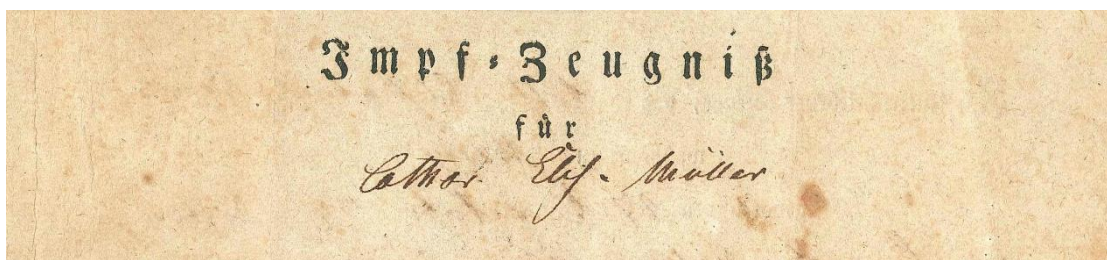 Impf-Zeugniß
für
Cathar. Elis. Müller